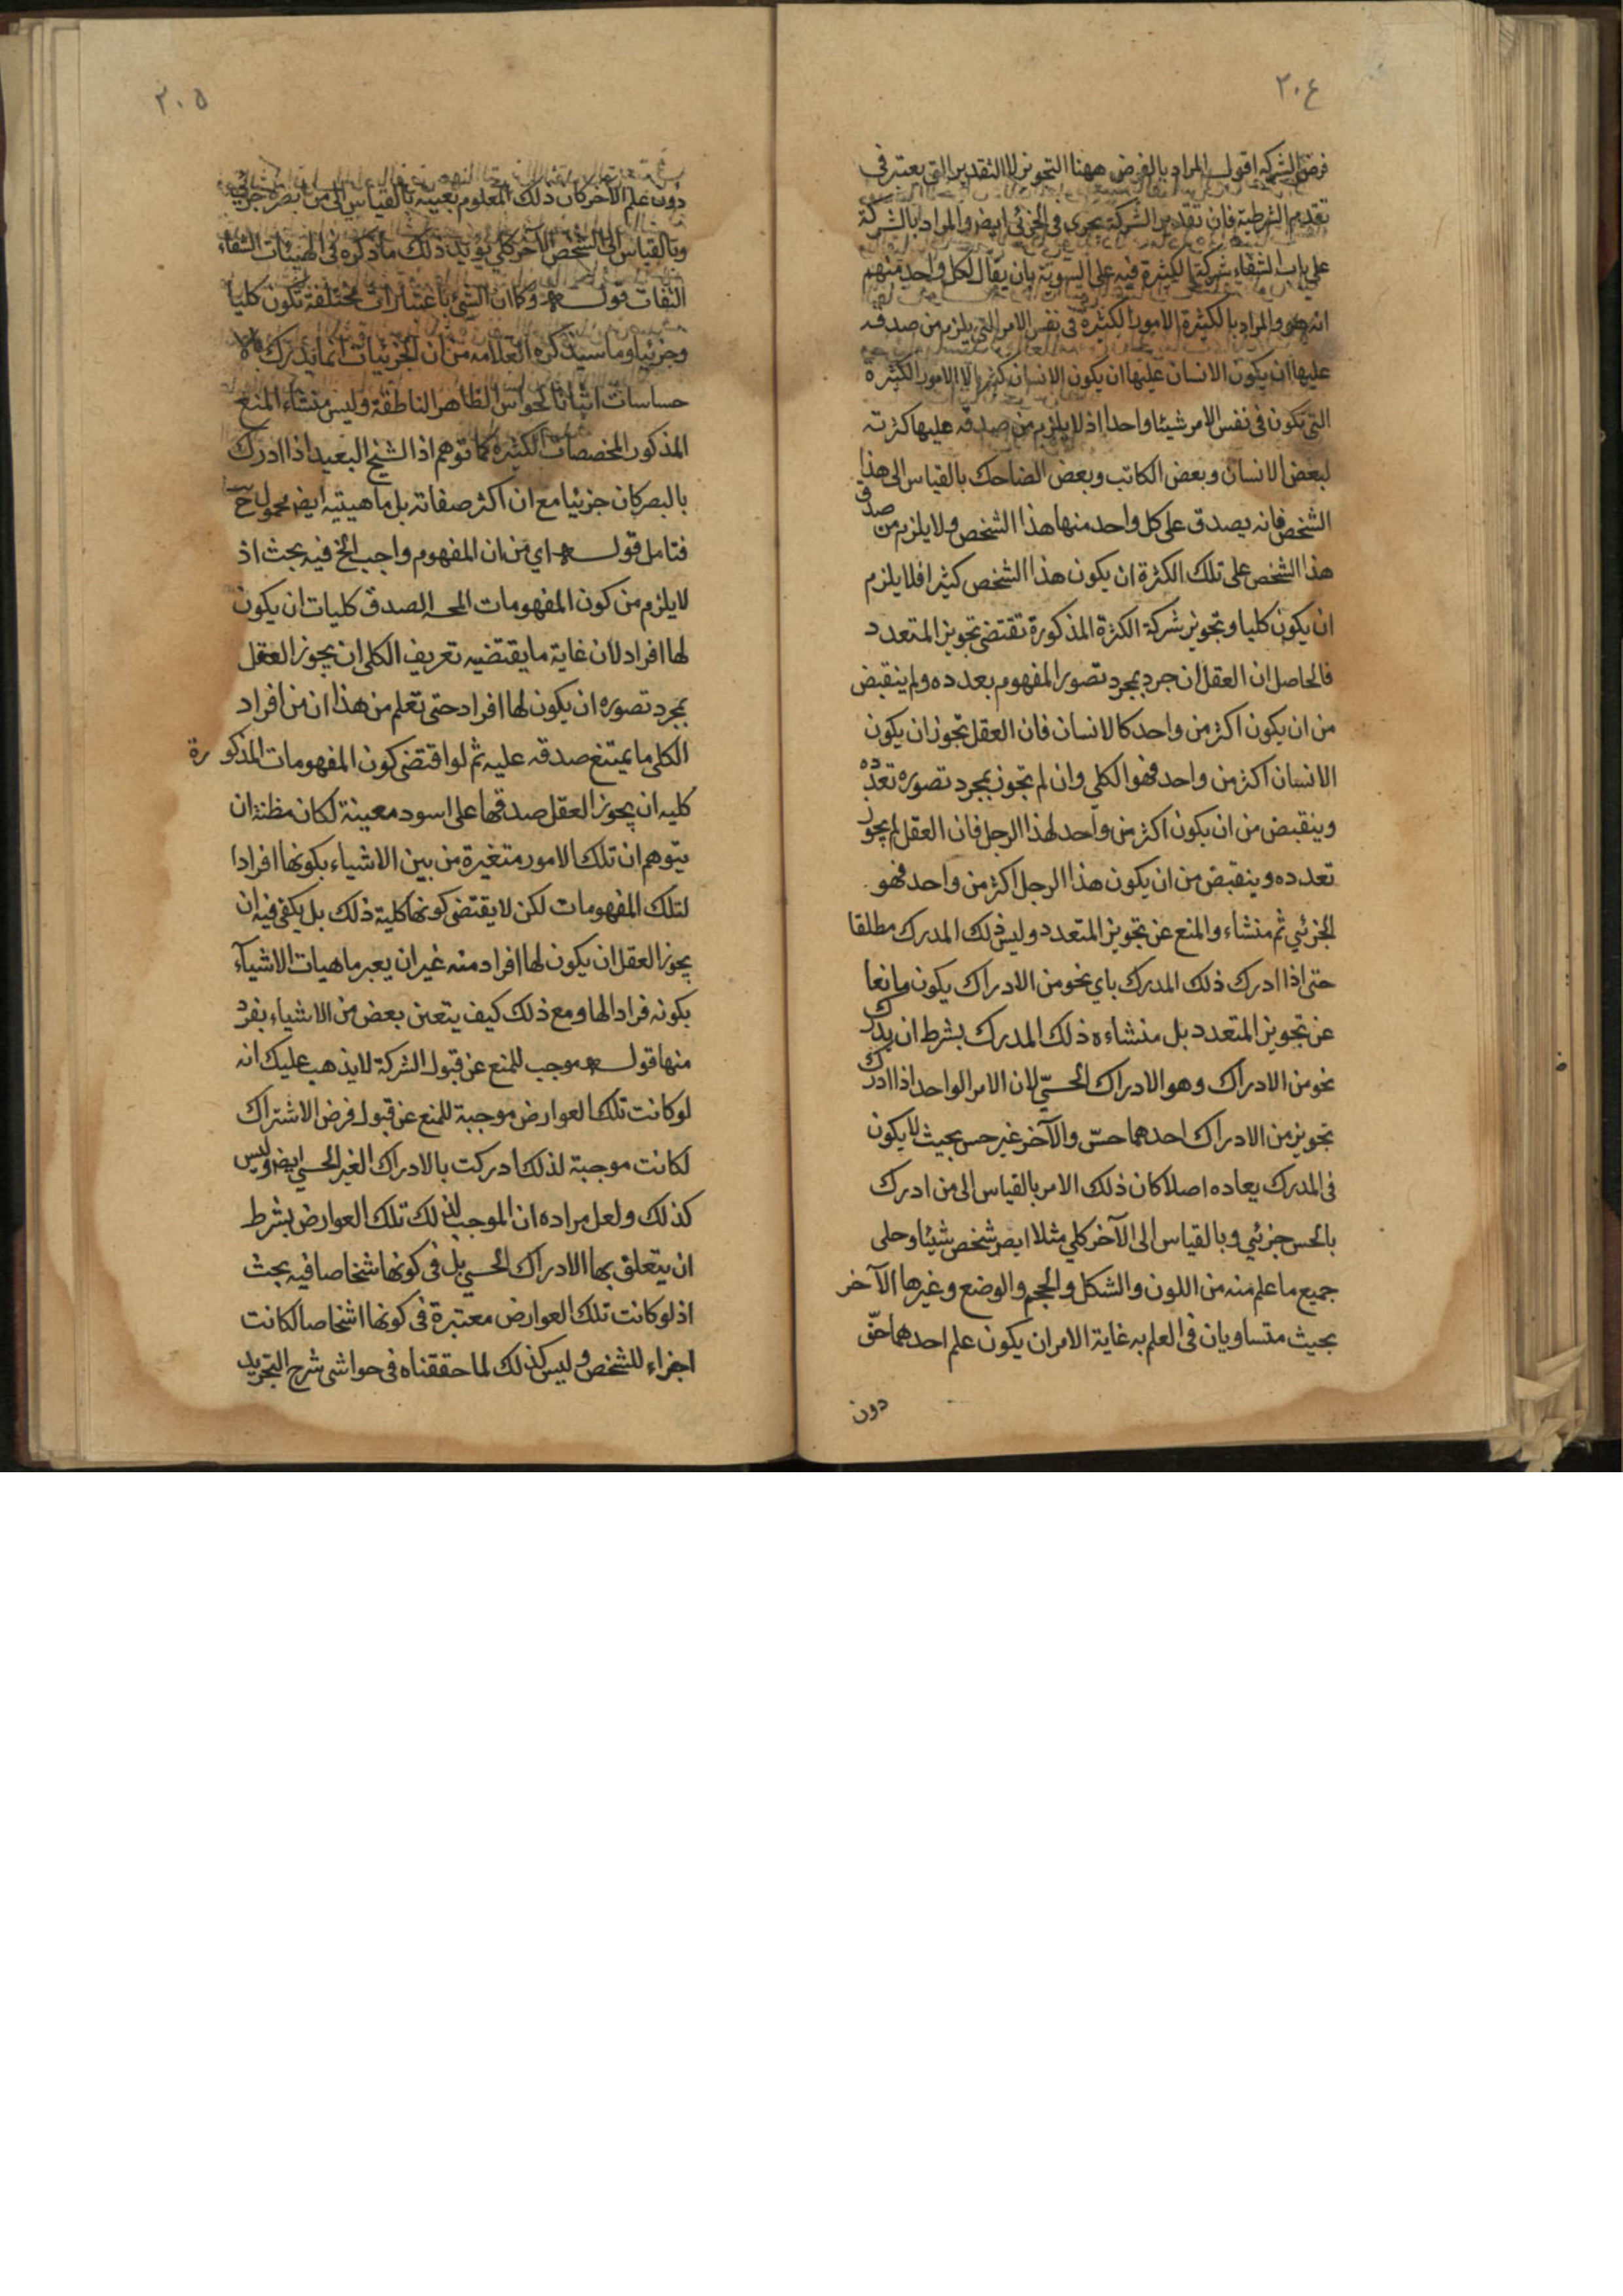 ٢٠٤
فرض الشركه اقول المراد بالفرض ههنا التجويز لا التقدير التى يعتبر فى
تقديم الشرطية فان تقدير الشركة يجرى فى الجزئى ايض والمراد بالشركة
على باب الشفاء شركة الكثيرة فيه على السوية بان يقال لكل واحد منهم
انه هو والمراد بالكثرة الامور الكثيرة فى نفس الامر التى يلزم من صدقه
عليها ان يكون الانسان عليها ان يكون الانسان كثيرا لا الامور الكثيرة
التى تكون فى نفس الامر شيئا واحدا اذ لا يلزم من صدقه عليها كثرته
لبعض الانسان وبعض الكاتب وبعض الضاحك بالقياس الى هذا
الشخص فانه يصدق على كل واحد منها هذا الشخص ولا يلزم من صدق
هذا الشخص على تلك الكثرة ان يكون هذا الشخص كثيرا فلا يلزم
ان يكون كليا وتجويز شركة الكثرة المذكورة تقتضى تجويز المتعدد
فالحاصل ان العقل ان جرد بمجرد تصور المفهوم بعدده ولم ينقبض
من ان يكون اكثر من واحد كالانسان فان العقل تجوز ان يكون
الانسان اكثر من واحد فهو الكلي وان لم تجوز بمجرد تصوره تعدده
وينقبض من ان يكون اكثر من واحد لهذا الرجل فان العقل لم يجوز
تعدده وينقبض من ان يكون هذا الرجل اكثر من واحد فهو
الجزئي ثم منشاء والمنع عن تجويز المتعدد وليس ذلك المدرك مطلقا
حتى اذا ادرك ذلك المدرك باي نحو من الادراك يكون مانعا
عن تجويز المتعدد بل منشاءه ذلك المدرك بشرط ان يدرك
نحو من الادراك وهو الادراك الحسّي لان الامر الواحد اذا ادرك
تجويز من الادراك احدهما حسّ والآخر غير حس بحيث لا يكون
فى المدرك يعاده اصلا كان ذلك الامر بالقياس الى من ادرك
بالحس جزئي وبالقياس الى الآخر كلي مثلا ابصر شخص شيئا وحلى
جميع ما علم منه من اللون والشكل والحجم والوضع وغيرها الآخر
بحيث متساويان فى العلم به غاية الامر ان يكون علم احدهما حقّ
دون
٢٠٥
دون علم الآخر كان ذلك المعلوم بعينه بالقياس الى من بصره جزئي
وبالقياس الى الشخص الآخر كلي يويد ذلك ما ذكره فى الهيئات الشفاء
الثقات قوله وكاان الشئ باعتبارات مختلفة تكون كليا
وجزئيا وما سيذكره العلامه من ان الجزئيات انما يدرك بالا
حساسات اثباتا لحواس الظاهر الناطقة وليس منشاء المنع
المذكور المخصصات الكثيرة كما توهم اذ الشيخ البعيد اذا ادرك
بالبصر كان جزئيا مع ان اكثر صفاته بل ماهيتيه ايض محمول
فتامل قوله اي من ان المفهوم واجب الخ فيه بحث اذ
لا يلزم من كون المفهومات المحـ الصدق كليات ان يكون
لها افراد لان غاية ما يقتضيه تعريف الكلى ان يجوز العقل
بمجرد تصوره ان يكون لها افراد حتى تعلم من هذا ان من افراد
الكلى ما يمتنع صدقه عليه ثم لو اقتضى كون المفهومات المذكورة
كليه ان يجوز العقل صدقها على اسود معينة لكان مظنة ان
يتوهم ان تلك الامور متغيرة من بين الاشياء بكونها افرادا
لتلك المفهومات لكن لا يقتضى كونها كلية ذلك بل يكفى فيه ان
يجوز العقل ان يكون لها افراد منه غير ان يعبر ماهيات الاشيآء
بكونه فرادا لها ومع ذلك كيف يتعين بعض من الاشياء بفرد
منها قوله موجب للمنع عن قبول الشركة لا يذهب عليك انه
لو كانت تلك العوارض موجبة للمنع عن قبول فرض الاشتراك
لكانت موجبة لذلك ادركت بالادراك الغير الحسي ايض وليس
كذلك ولعل مراده ان الموجب لذلك تلك العوارض بشرط
ان يتعلق بها الادراك الحسي بل فى كونها شخاصا فيه بحث
اذ لو كانت تلك العوارض معتبرة فى كونها اشخاصا لكانت
اجزاء للشخص وليس كذلك لما حققناه فى حواشى شرح التجريد